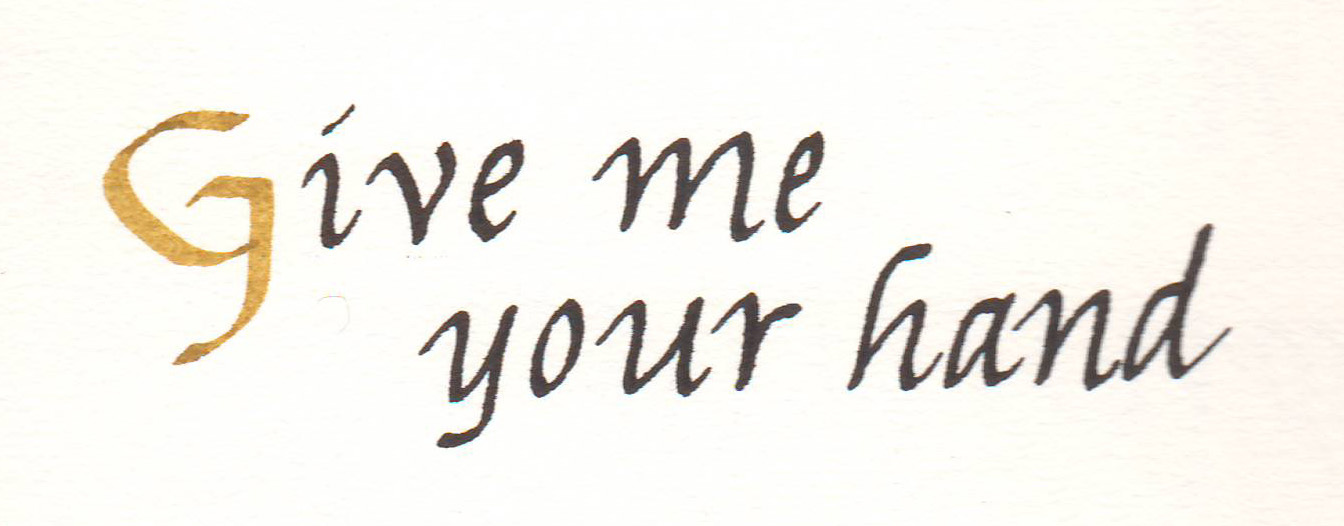 Give me
your hand